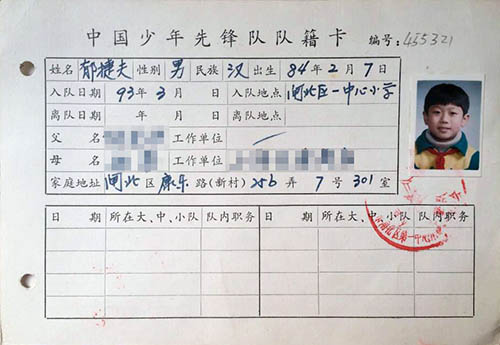 中国少年先锋队队籍卡 编号:455321
姓名 郁捷夫 性别 男 民族 汉 出生 84年2月7日
入队日期 93年3月 日 入队地点 闸北区一中心小学
离队日期 年 月 日 离队地点
父 名 工作单位
母 名 工作单位
家庭地址 闸北区康乐路(新村)256弄7号301室
日 期 所在大、中、小队 队内职务 日 期 所在大、中、小队 队内职务